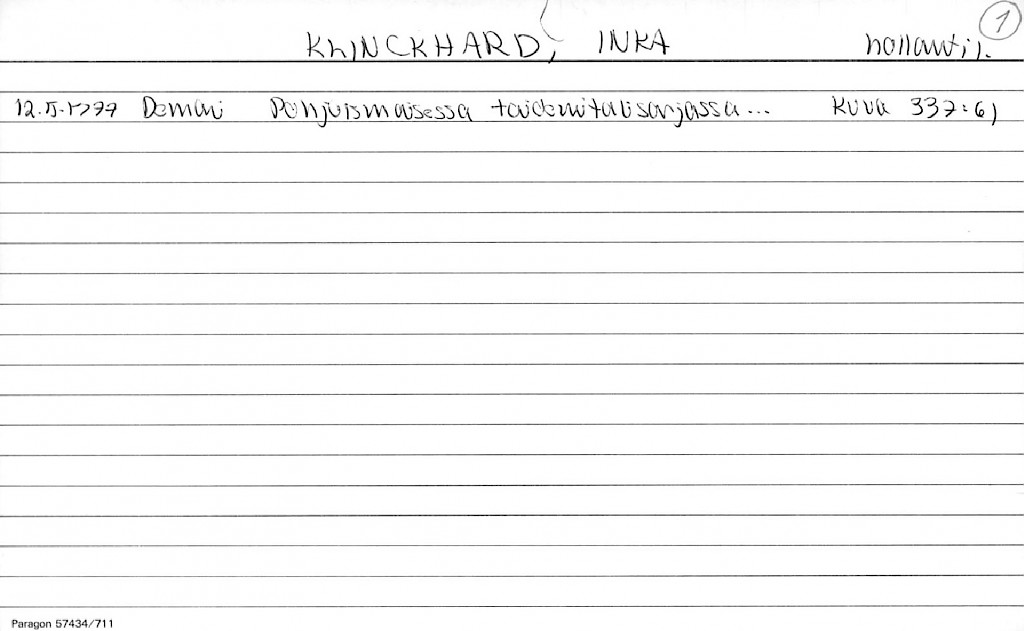 1
KLINCKHARD, INKA hollantil.
12.5.1977 Demari Pohjoismaisessa taidemitalisarjassa... Kuva 337:6)
Paragon 57434/711